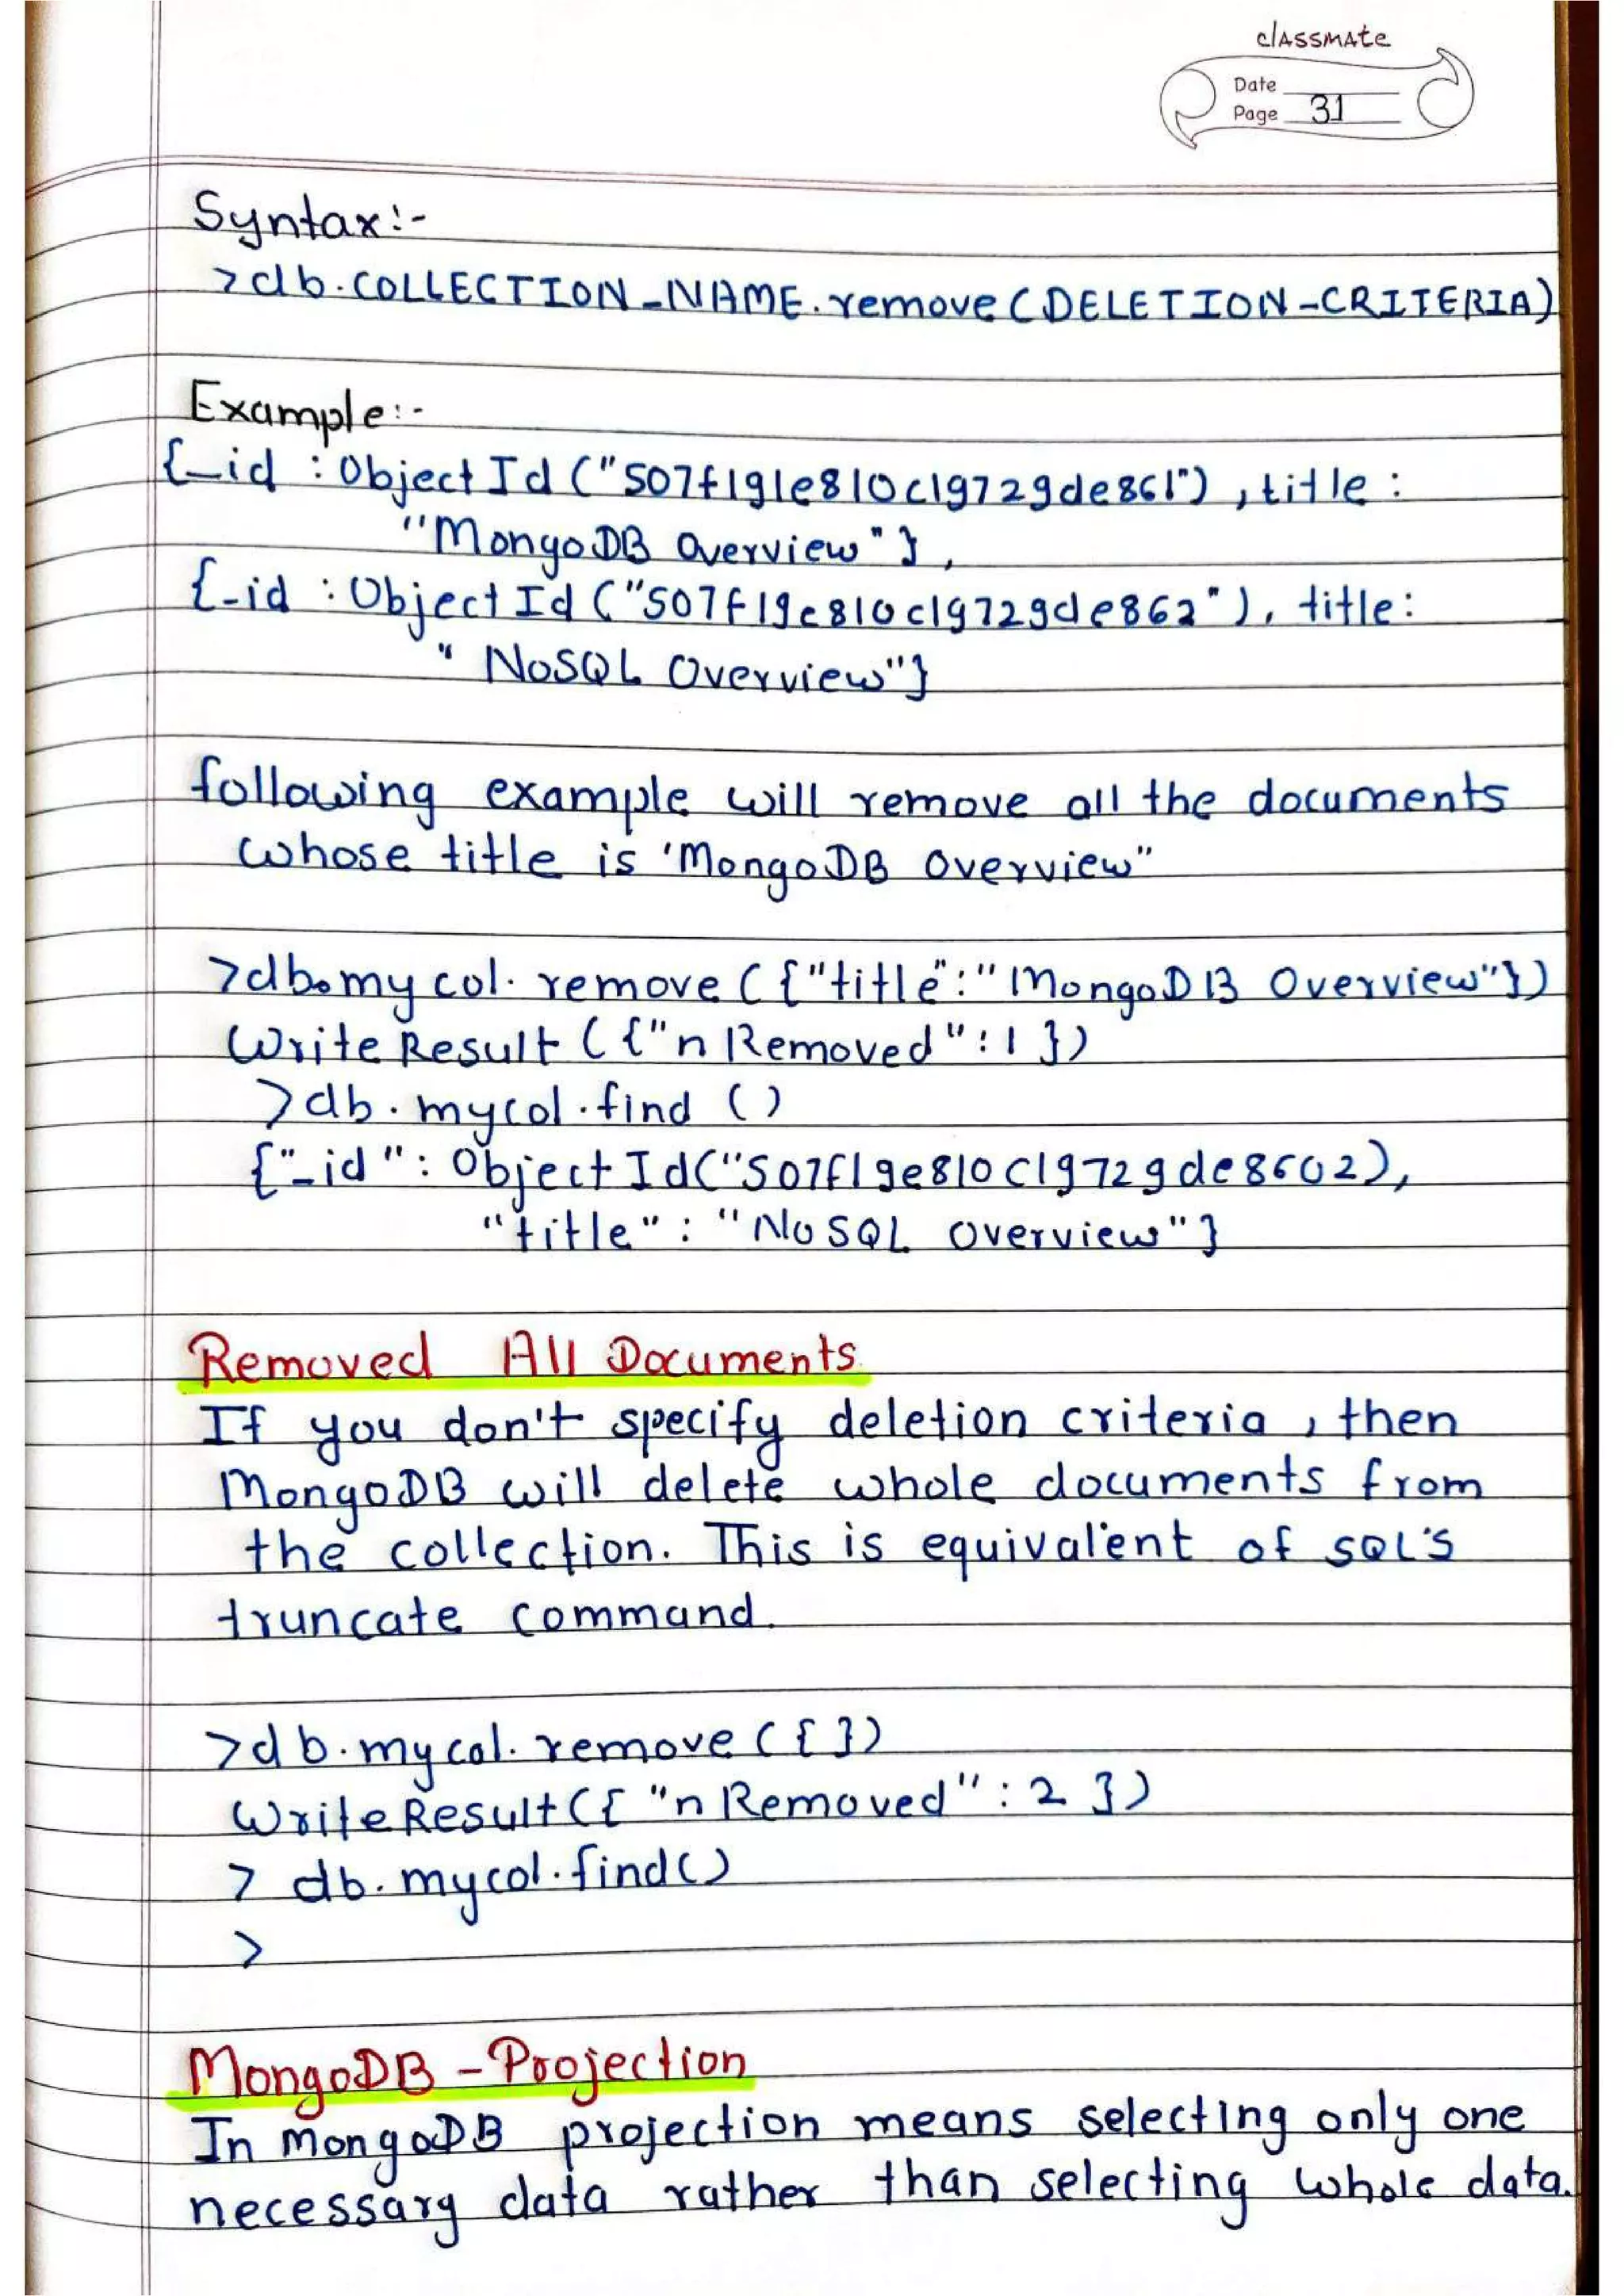 classmate
Date
Page 31
Syntax:-
>db.COLLECTION_NAME.remove(DELETION-CRITERIA)
Example:-
{_id : ObjectId("507f191e810c19729de861"), title :
"MongoDB Overview"},
{_id : ObjectId("507f19e810c19729de862"), title:
"NoSQL Overview"}
following example will remove all the documents
whose title is 'MongoDB Overview"
>db.mycol.remove({"title":"MongoDB Overview"})
WriteResult({"nRemoved":1})
>db.mycol.find()
{"_id": ObjectId("507f19e810c19729de8602),
"title" : "NoSQL Overview"}
Removed All Documents
If you don't specify deletion criteria, then
MongoDB will delete whole documents from
the collection. This is equivalent of SQL's
truncate command.
>db.mycol.remove({})
WriteResult({"nRemoved": 2})
> db.mycol.find()
>
MongoDB - Projection
In MongoDB projection means selecting only one
necessary data rather than selecting whole data.